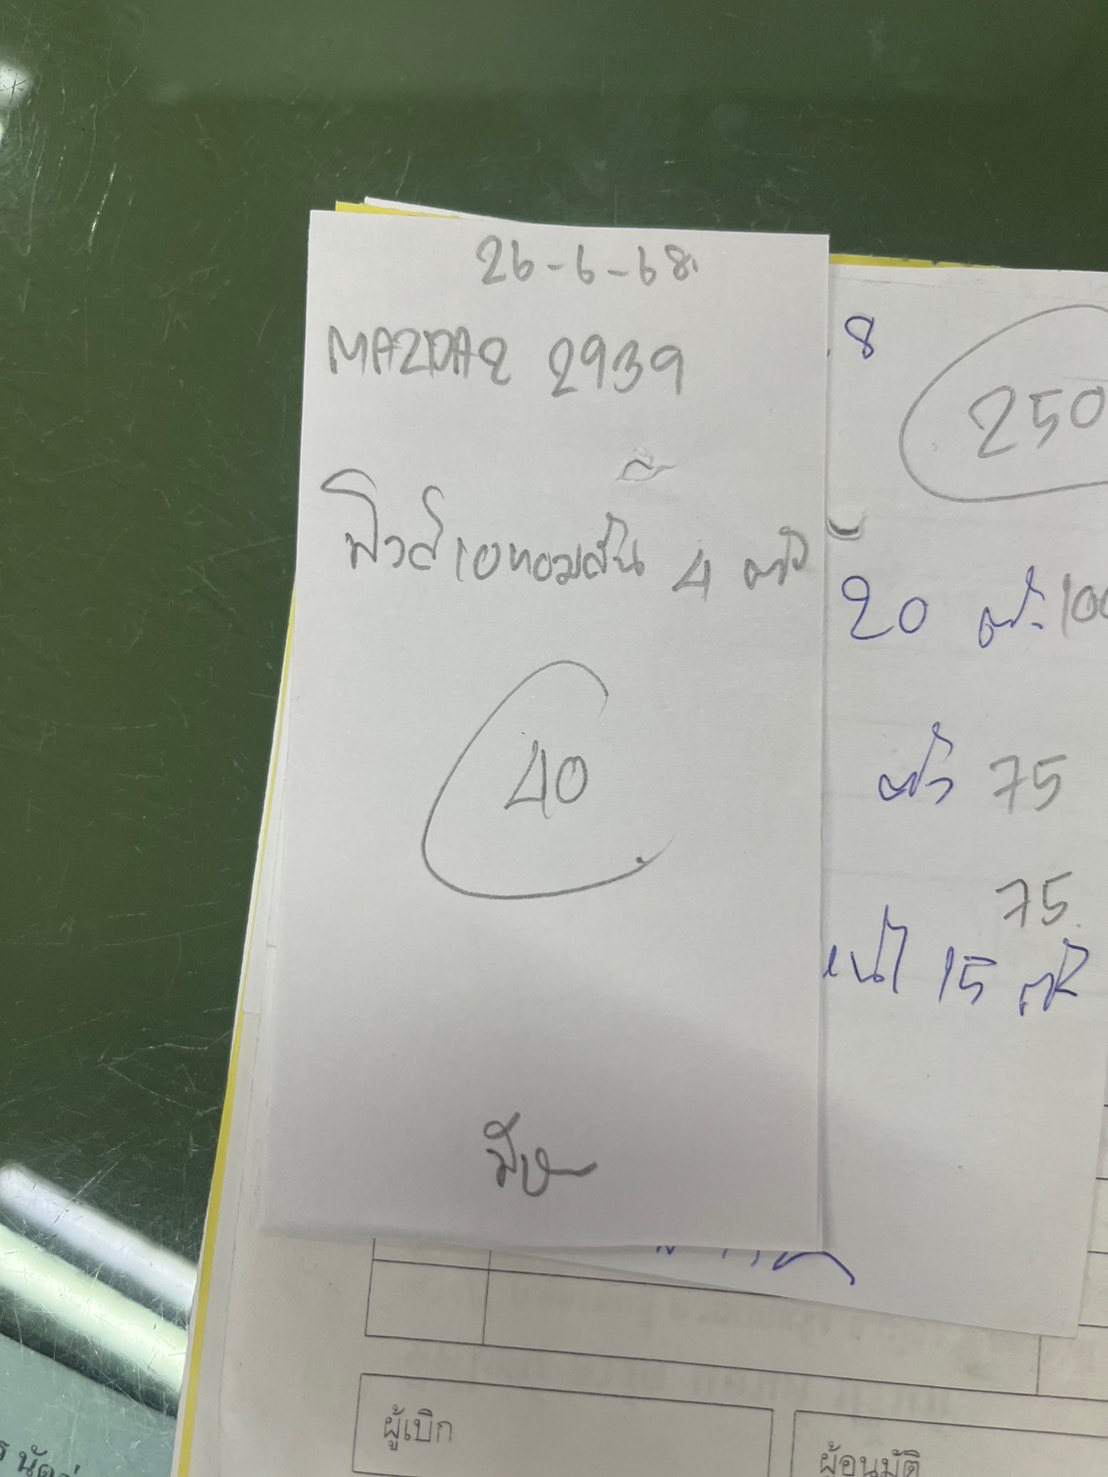 26-6-68.
MAZDA2 2939
ฟิวส์เอทอมสั้น 4 ตัว
40
.8
250
20 ตัว. 100
ตัว 75
75
15 ตัว
ผู้เบิก
ผู้อนุมัติ